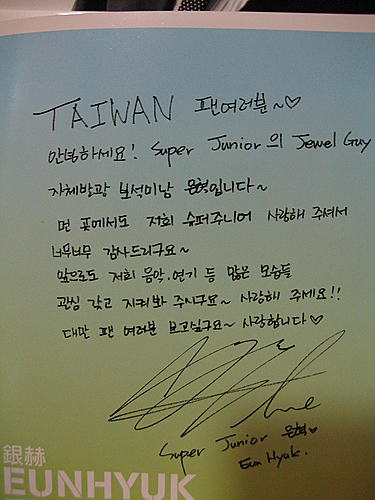 TAIWAN 팬여러분~♡
안녕하세요! Super Junior의 Jewel Guy
자체발광 보석미남 은혁입니다~
먼 곳에서도 저희 슈퍼주니어 사랑해 주셔서
너무너무 감사드리구요~
앞으로도 저희 음악.연기 등 많은 모습들
관심 갖고 지켜봐 주시구요~ 사랑해 주세요!!
대만 팬 여러분 보고싶구요~ 사랑합니다♡
Super Junior 은혁♡
Eun Hyuk.
銀赫
EUNHYUK